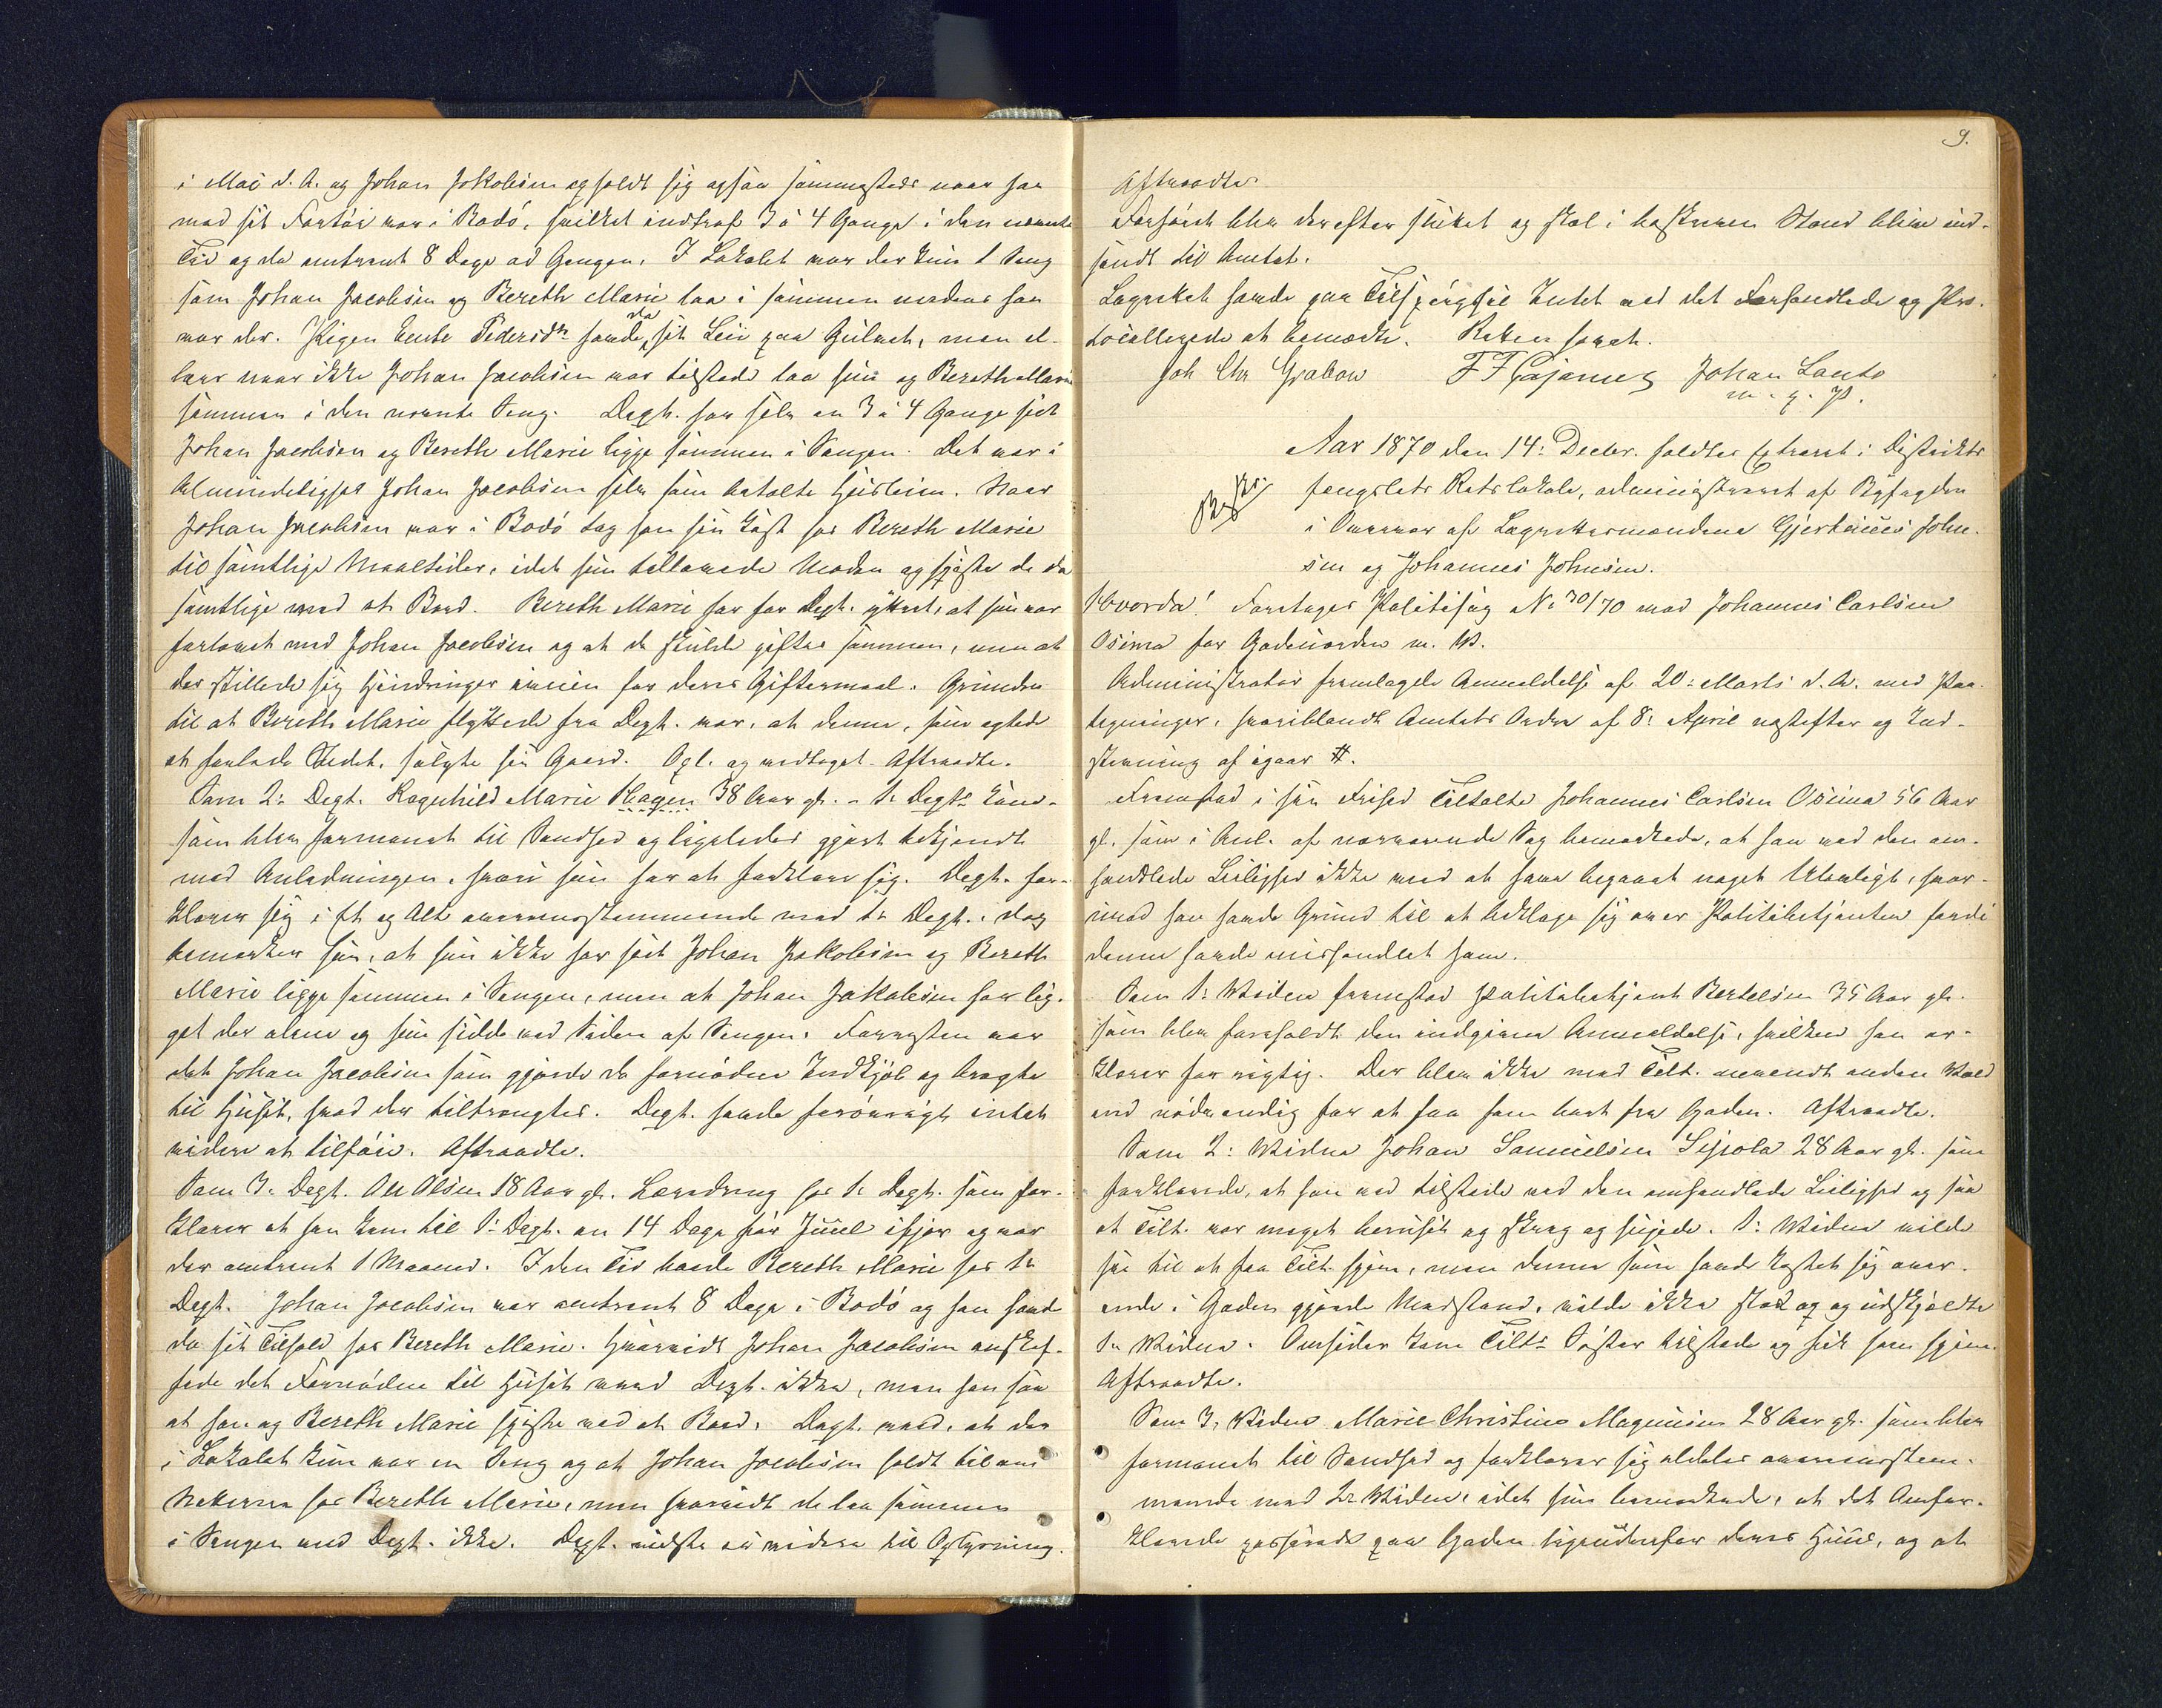 i Mai d. A. og Johan Jakobsen opholdt sig ogsaa sammesteds naar han
med sit Fartøi var i Bodø, hvilket indtraf 3 à 4 Gange i den nævnte
Tid og da omtrent 8 Dage ad Gangen. I Lokalet var der kun 1 Seng
som Johan Jacobsen og Bereth Marie laa i sammen medens han
var der. Pigen Pedersdr havde da sit Leie paa Gulvet, men el-
lers naar ikke Johan Jacobsen var tilstede laa hun og Bereth Marie
sammen i den nævnte Seng. Dept. har selv en 3 à 4 Gange seet
Johan Jacobsen og Bereth Marie ligge sammen i Sengen. Det var i
Almindelighed Johan Jacobsen selv som betalte Husleien. Naar
Johan Jacobsen var i Bodø tog han sin Kost hos Bereth Marie
til samtlige Maaltider, idet hun tillavede Maden og spiste de da
samtlige ved et Bord. Bereth Marie har for Dept. yttret, at hun var
forlovet med Johan Jacobsen og at de skulde giftes sammen, men at
der stillede sig Hindringer iveien for deres Giftermaal. Grunden
til at Bereth Marie flyttede fra Dept. var, at denne, som agtede
at forlade Stedet, solgte sin Gaard. Opl. og vedtaget. Aftraadte.
Som 2: Dept. Ragnhild Marie Hagen 38 Aar gl. - 1: Depts Kone -
som blev formanet til Sandhed og ligeledes gjort bekjendt
med Anledningen, hvori hun har at forklare sig. Dept. for-
klarer sig i Et og Alt overensstemmende med 1: Dept., dog
bemærker hun, at hun ikke har seet Johan Jakobsen og Bereth
Marie ligge sammen i Sengen, men at Johan Jakobsen har lig-
get der alene og hun sidde ved Siden af Sengen. Forresten var
det Johan Jacobsen som gjorde de fornødne Indkjøb og bragte
til Huset, hvad der tiltrængtes. Dept. havde forøvrigt intet
videre at tilføie. Aftraadte.
Som 3: Dept. Ole Olsen 18 Aar gl. Læredreng hos 1: Dept. som for-
klarer at han kom til 1: Dept. en 14 Dage før Juul ifjor og var
der omtrent 1 Maaned. I den Tid boede Bereth Marie hos 1:
Dept. Johan Jacobsen var omtrent 8 Dage i Bodø og han havde
da sit Tilhold hos Bereth Marie. Hvorvidt Johan Jacobsen anskaf-
fede det Fornødne til Huset veed Dept. ikke, men han saa
at han og Bereth Marie spiste ved et Bord. Dept. veed, at der
i Lokalet kun var en Seng og at Johan Jacobsen holdt til om
Nætterne hos Bereth Marie, men hvorvidt de laa sammen
i Sengen veed Dept. ikke. Dept. vidste ei videre til Oplysning.
9.
Aftraadte.
Forhøret blev derefter sluttet og skal i beskreven Stand blive ind-
sendt til Amtet.
Lagrettet havde paa Tilspørgsel Intet ved det Forhandlede og Pro-
tocollerede at bemærke. Retten hævet.
Joh Chr Grabow F F Cajanus Johan Lento
m. p. P.
Aar 1870 den 14: Decbr. holdtes Extraret i Distrikts
fengslets Retslokale, administreret af Byfogden
i Overvær af Lagrettesmændene Gjertinius John-
sen og Johannes Johnsen.
Hvorda! Foretages Politisag No 30/70 mod Johannes Carlsen
Osima for Gadeuorden m. V.
Administrator fremlagde Anmeldelse af 20: Marts d. A. med Paa-
tegninger, hvoriblandt Amtets Ordre af 8: April næstefter og Ind-
stevning af igaar #.
Fremstod i sin Frihed Tiltalte Johannes Carlsen Osima 56 Aar
gl. som i Anl. af nærværende Sag bemærkede, at han ved den om-
handlede Leilighed ikke veed at have begaaet noget Ulovligt, hvor-
imod han havde Grund til at beklage sig over Politibetjenten fordi
denne havde mishandlet ham.
Som 1: Vidne fremstod Politibetjent Bertelsen 35 Aar gl.
som blev foreholdt den indgivne Anmeldelse, hvilken han er-
klærer for rigtig. Der blev ikke mod Tilt. anvendt anden Vold
end nødvendig for at faa ham bort fra Gaden. Aftraadte.
Som 2: Vidne Johan Samuelsen Sipola 28 Aar gl. som
forklarede, at han var tilstede ved den omhandlede Leilighed og saa
at Tilt. var meget beruset og skreg og hujede. 1: Vidne vilde
see til at faa Tilt. hjem, men denne som havde kastet sig over-
ende i Gaden gjorde Modstand, vilde ikke staa op og udskjældte
1: Vidne. Omsider kom Tilts Søster tilstede og fik ham hjem.
Aftraadte.
Som 3: Vidne Marie Christine Magnusen 28 Aar gl. som blev
formanet til Sandhed og forklarer sig aldeles overensstem-
mende med 2: Vidne, idet hun bemærkede, at det Omfor-
klarede passerede paa Gaden ligeudenfor deres Huus, og at